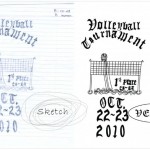 Volleyball
Tournament
1st Place
OCT.
22-23
2010
Sketch
Volleyball
Tournament
1st Place
OCT.
22-23
2010